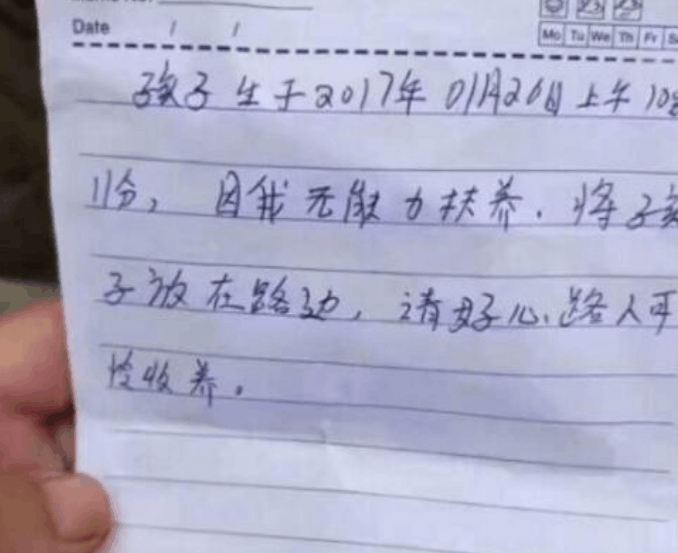 Date / /
Mo Tu We Th Fr S
孩子生于2017年01月26日上午10
11分，因我无能力扶养．将孩
子放在路边，请好心路人可
怜收养。